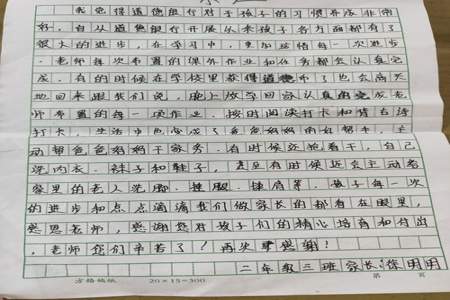 我觉得道德银行对于孩子的习惯养成非常
好,自从道德银行开展以来孩子各方面都有了
很大的进步,在学习中,更加珍惜每一次进步
,老师每次布置的课外作业和任务都会认真完
成,有的时候在学校里获得道德币了也会高兴
地回来跟我们说,晚上放学回家认真的完成老
师布置的每一项作业,按时阅读打卡和背古诗
打卡,生活中也
动帮爸爸妈妈干家务,有时候还抢着干,自己
洗内衣、袜子和鞋子,甚至有时候还会主动给
家里的老人洗脚、捶腿、捶肩等,孩子每一次
的进步和点点滴滴我们做家长的都看在眼里,
感恩老师,感谢您对孩子们的精心培育和付出
,老师您们辛苦了!再次感谢!
二年级三班 家长:
方格稿纸 20×15=300 第 页